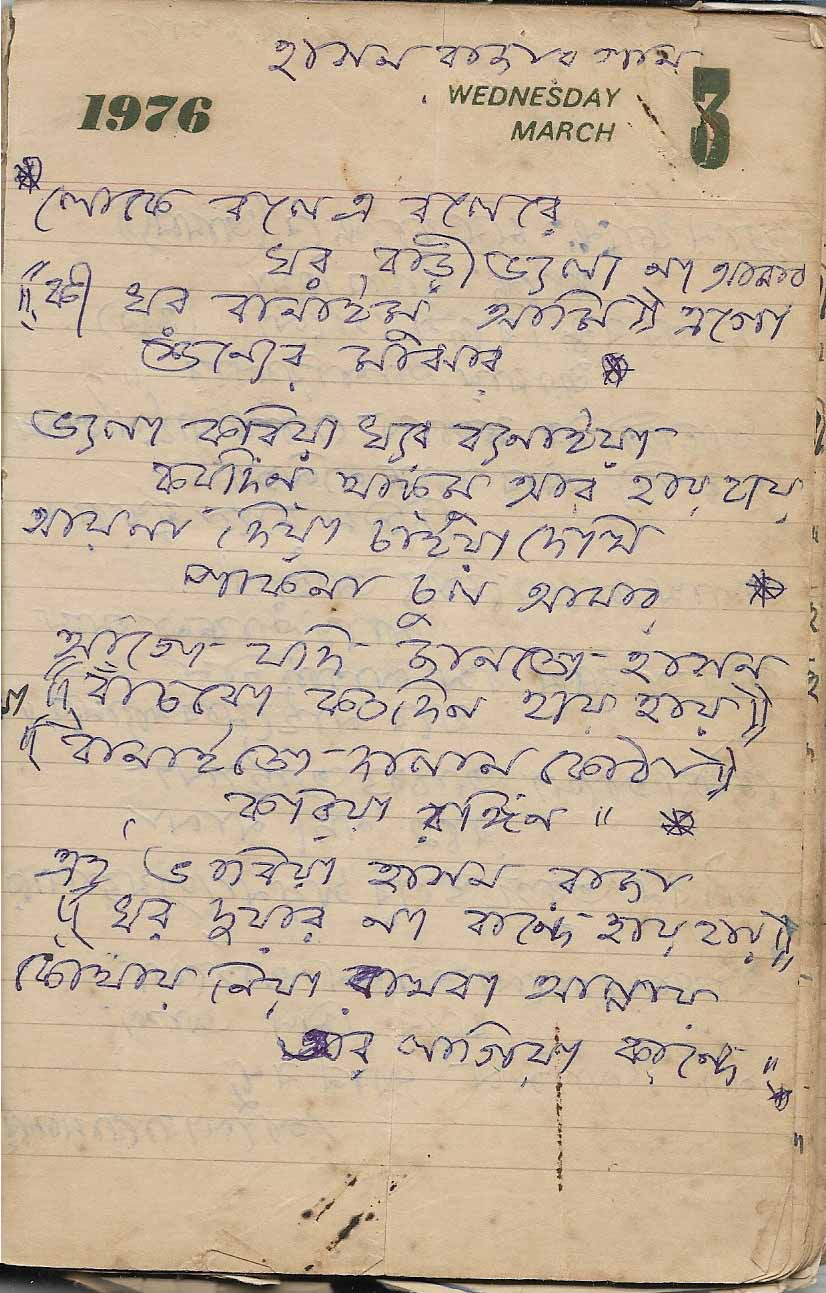 হাসন রাজার গান
1976
WEDNESDAY 3
MARCH
লোকে বলে ও বলেরে
ঘর বাড়ী ভালা না আমার
"কী ঘর বানাইমু আমি" এগো
শুন্যের মাঝার
ভালা করিয়া ঘর বানাইয়া
কয়দিন থাকমু আর হায় হায়
আয়না দিয়া চাইয়া দেখি
পাকনা চুল আমার
আগে যদি জানতো হাসন
বাঁচবো কতদিন হায় হায়
বানাইতো দালান কোঠা
করিয়া রঙ্গিন "
এই ভাবিয়া হাসন রাজা
ঘর দুয়ার না বান্দে হায় হায়"
কোথায় নিয়া রাখবা আল্লায়
তার লাগিয়া কান্দে "